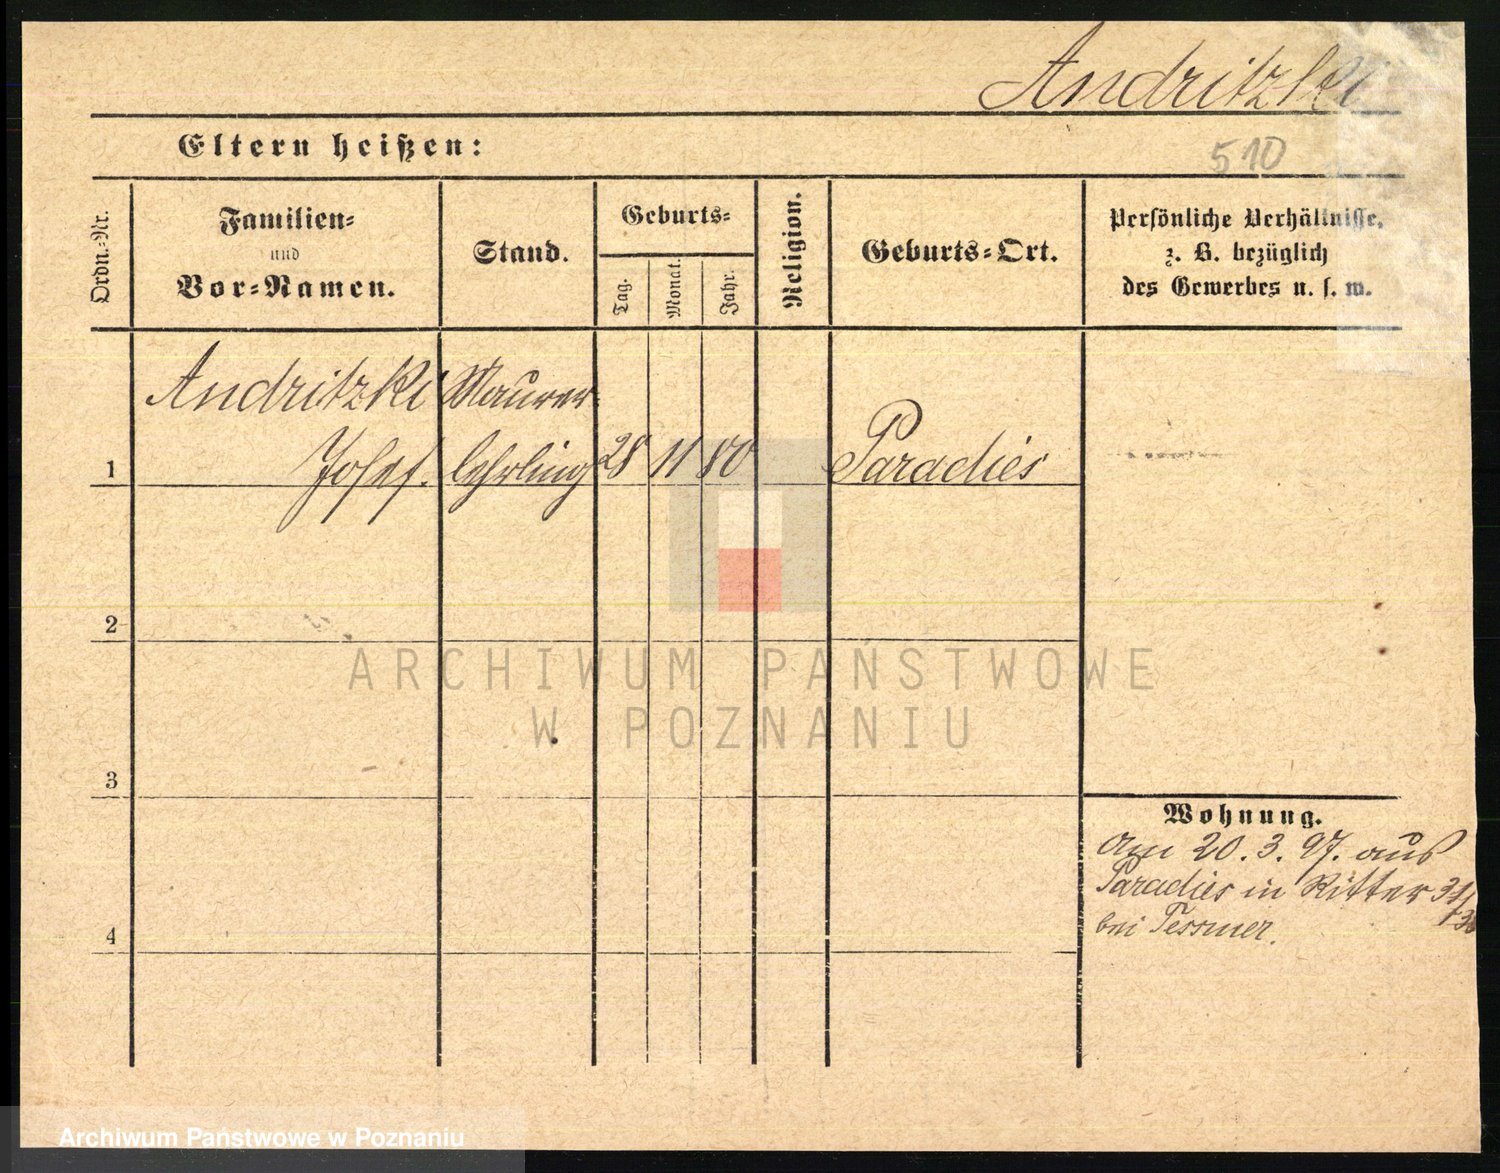 Andritzki
Eltern heißen:
510
Ordn.-Nr.
Familien-
und
Vor-Namen.
Stand.
Geburts-
Tag.
Monat.
Jahr.
Religion.
Geburts-Ort.
Persönliche Verhältnisse,
z. B. bezüglich
des Gewerbes u. s. w.
Andritzki Maurer-
1 Josef. lehrling 28 11 80 Paradies
2
ARCHIWUM PAŃSTWOWE
W POZNANIU
3
Wohnung.
Am 20.3.97. aus
Paradies in Ritter 31/
bei Tessmer.
4
Archiwum Państwowe w Poznaniu